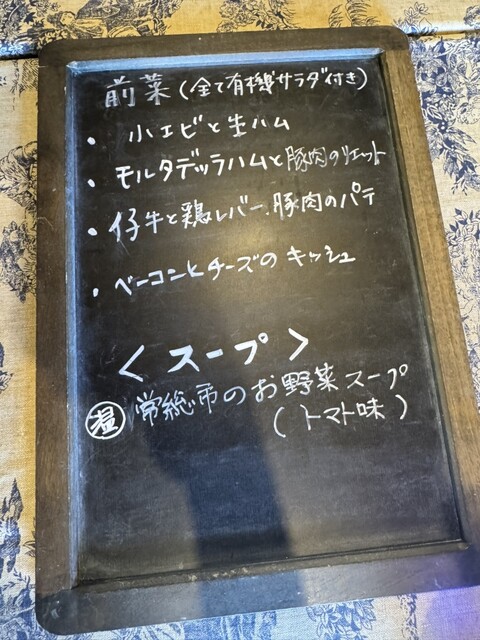 前菜(全て有機サラダ付き)
・小エビと生ハム
・モルタデッラハムと豚肉のリエット
・仔牛と鶏レバー、豚肉のパテ
・ベーコンとチーズのキッシュ
<スープ>
温 常総市のお野菜スープ
(トマト味)